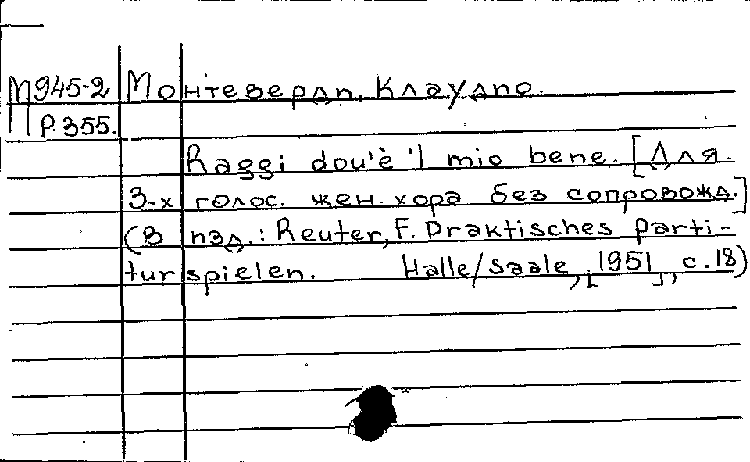 М945-2 Монтеверди, Клаудио.
П Р.355.
Raggi dou'è 'l mio bene. [Для
3-х голос. жен. хора без сопровожд.]
(В изд.: Reuter, F. Praktisches Parti-
turspielen. Halle/Saale, [1951], с. 18)